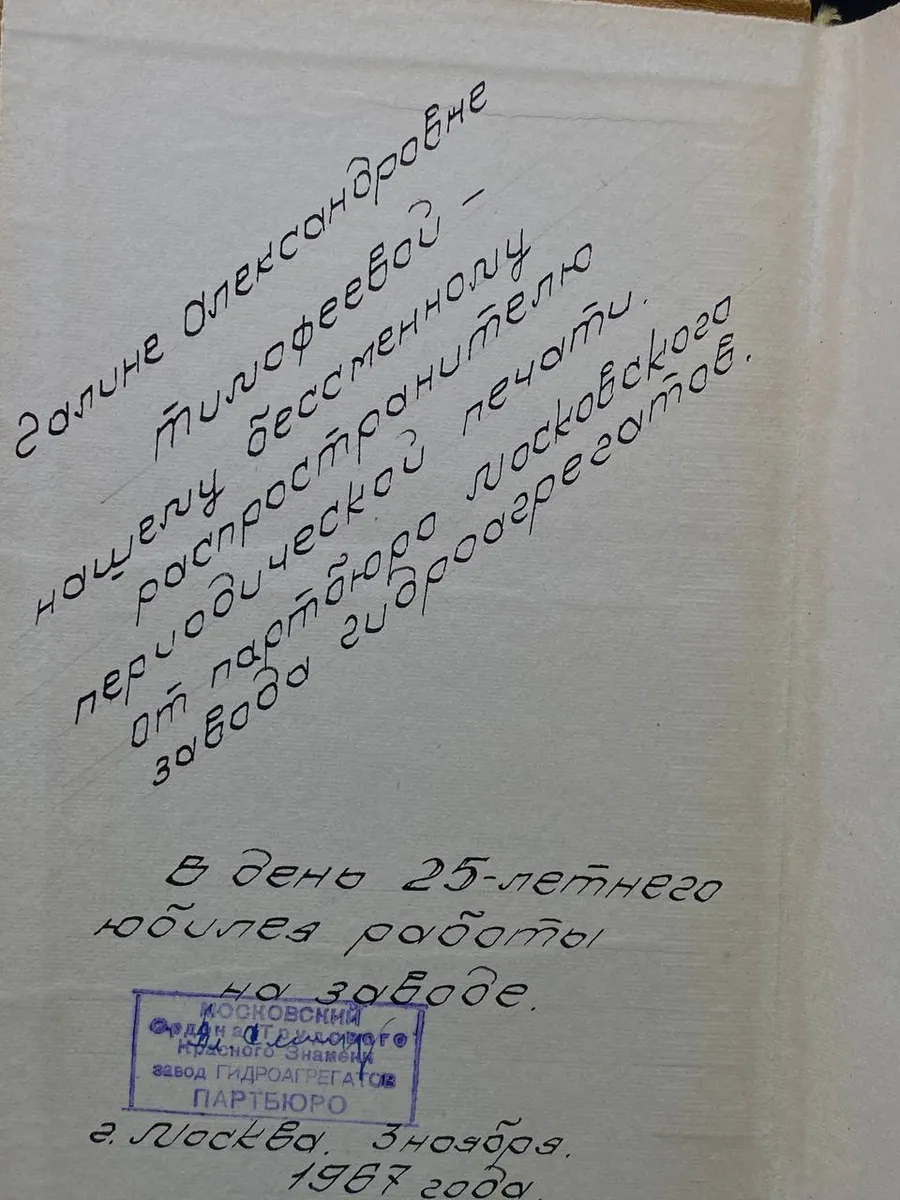 Галине Александровне
Тимофеевой —
нашему бессменному
распространителю
периодической печати.
от партбюро московского
завода гидроагрегатов.
В день 25-летнего
юбилея работы
на заводе.
МОСКОВСКИЙ
Ордена Трудового
Красного Знамени
завод ГИДРОАГРЕГАТОВ
ПАРТБЮРО
г. Москва. 3 ноября.
1967 года.